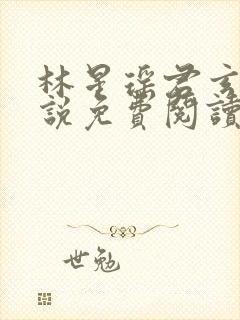 林星瑤君玄
說免費閱讀
世勉